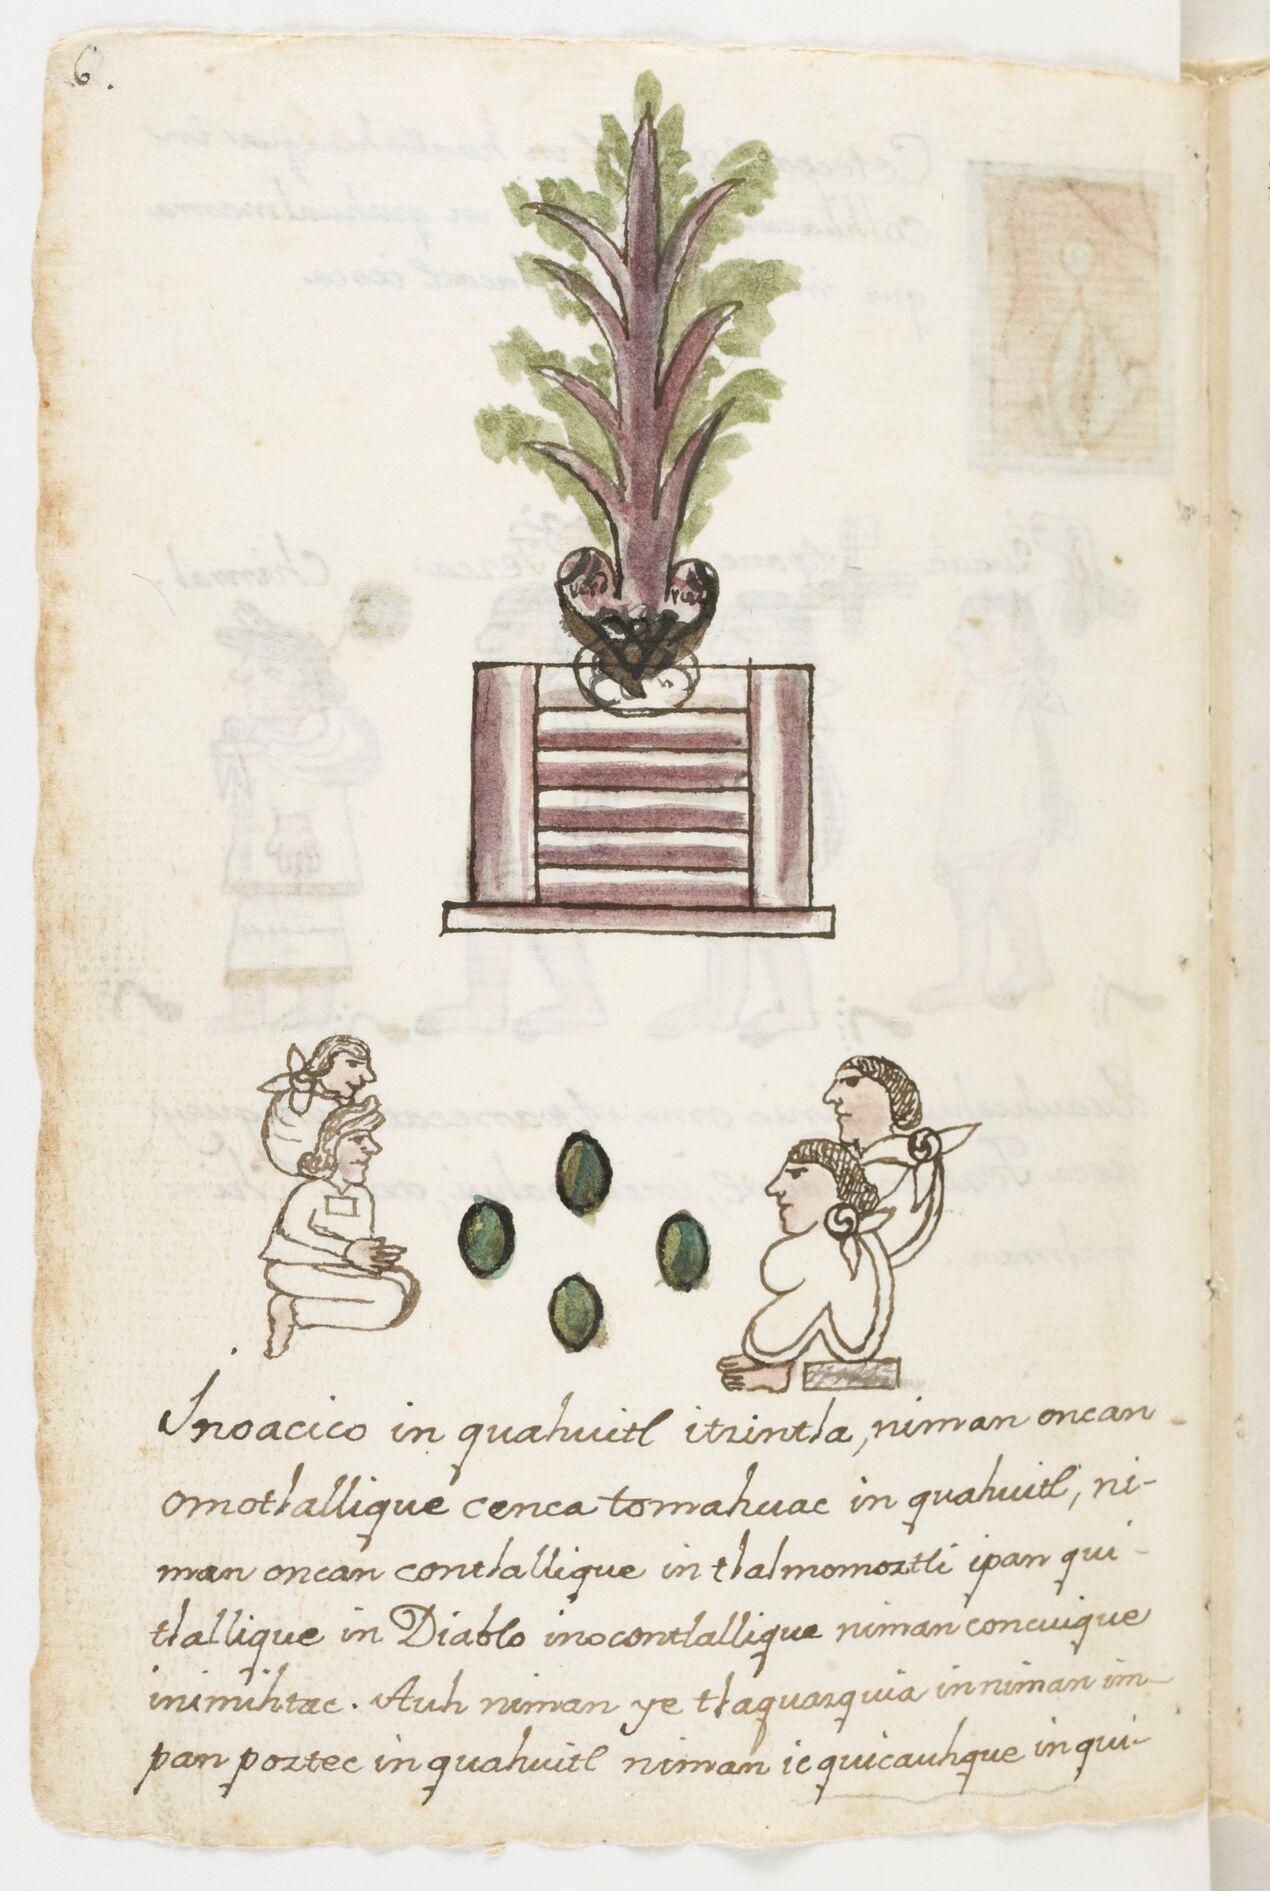 6.
verd
verd
Inoacico in quahuitl itzintla, niman oncan
omotlallique cenca tomahuac in quahuitl, ni-
man oncan contlallique in tlalmomoztli ipan qui-
tlallique in Diablo inocontlallique niman concuique
inimihtac. Auh niman ye tlaquazquia in niman im-
pan poztec in quahuitl niman ic quicauhque in qui-